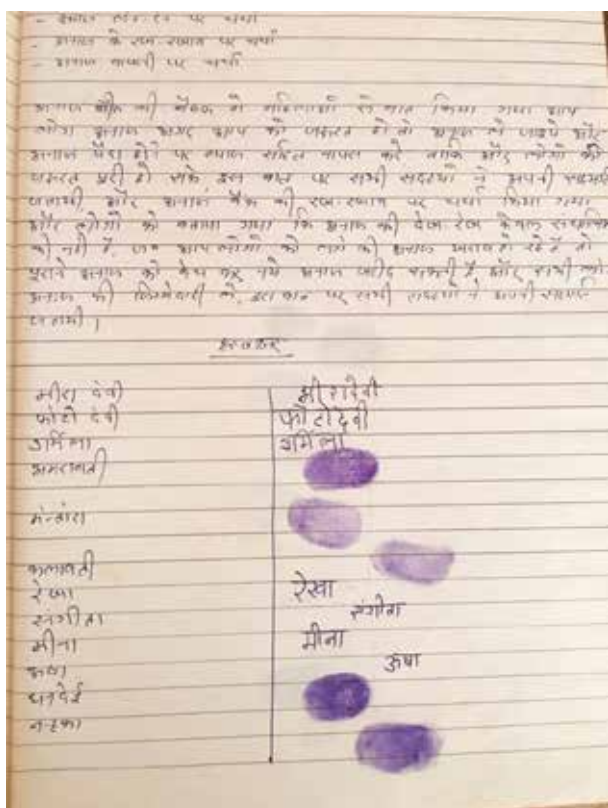 - अनाज लेन-देन पर चर्चा
- अनाज के रख-रखाव पर चर्चा
- अनाज वापसी पर चर्चा
अनाज बैंक की बैठक में महिलाओं से बात किया गया आप
लोग अनाज अगर आप को जरूरत हो तो अनाज ले जाइये और
अनाज पैदा होने पर ब्याज सहित वापस करें ताकि और लोगों की
जरूरत पूरी हो सके इस बात पर सभी सदस्यों ने अपनी सहमति
जतायी और अनाज बैंक की रख-रखाव पर चर्चा किया गया
और लोगों को बताया गया कि अनाज की देख-रेख केवल
की नहीं है, जब आप लोगों को लगे की अनाज खराब हो रहे हैं तो
पुराने अनाज को बेच कर नये अनाज खरीद सकती हैं और सभी लोग
अनाज की जिम्मेदारी लें, इस बात पर सभी सदस्यों ने अपनी सहमति
जतायी।
हस्ताक्षर
मीरा देवी मीरादेवी
फोटो देवी फोटोदेवी
उर्मिला उर्मिला
अमरावती
मन्तोरा
कलावती
रेखा रेखा
संगीता संगीता
मीना मीना
ऊषा ऊषा
धनदेई
नन्हका